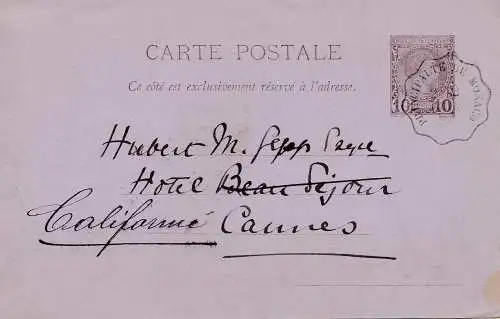 CARTE POSTALE
Ce côté est exclusivement réservé à l'adresse.
10 10
PRINCIPAUTÉ DE MONACO
Hubert M. Jepp Esqre
Hotel Beau Séjour
Californie Cannes